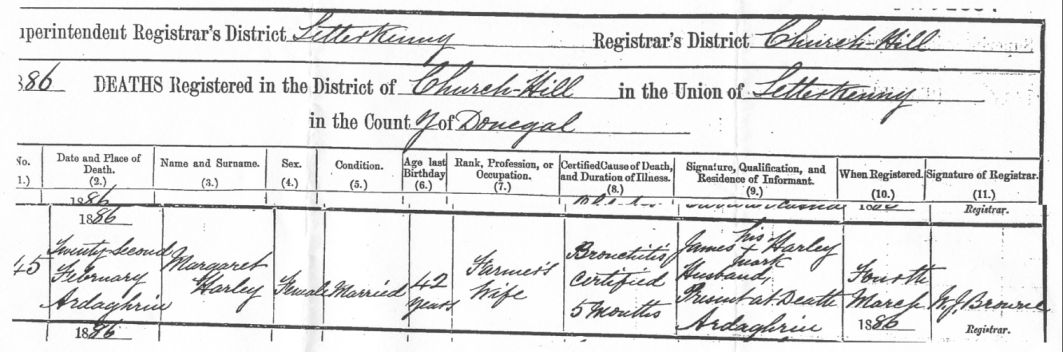 uperintendent Registrar's District Letterkenny Registrar's District Church-Hill
886 DEATHS Registered in the District of Church-Hill in the Union of Letterkenny
in the County of Donegal
No. Date and Place of Death. Name and Surname. Sex. Condition. Age last Birthday Rank, Profession, or Occupation. Certified Cause of Death, and Duration of Illness. Signature, Qualification, and Residence of Informant. When Registered. Signature of Registrar.
1.) (2.) (3.) (4.) (5.) (6.) (7.) (8.) (9.) (10.) (11.)
1886 Registrar.
1886
45
Twenty Second
February
Ardaghrin
Margaret
Harley
Female
Married
42
years
Farmer's
Wife
Bronchitis
Certified
5 Months
James his Harley
+ mark
Husband,
Present at Death
Ardaghrin
Fourth
March
1886
W.J. Browne
Registrar.
1886